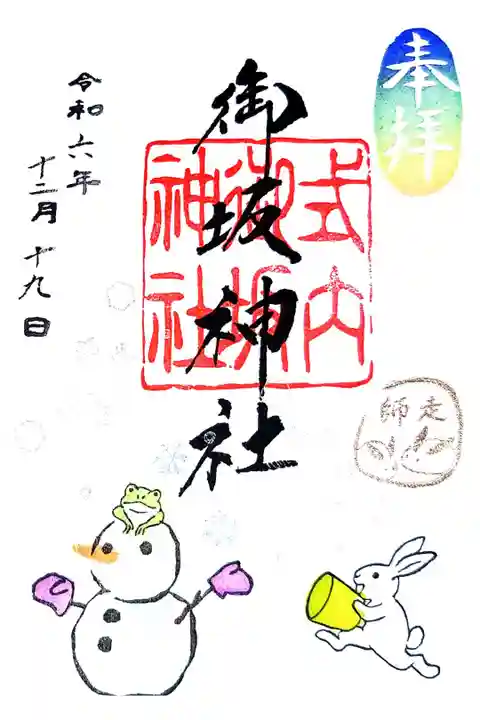 奉拝
御坂神社
式内
御坂
神社
令和六年
十二月十九日
師走